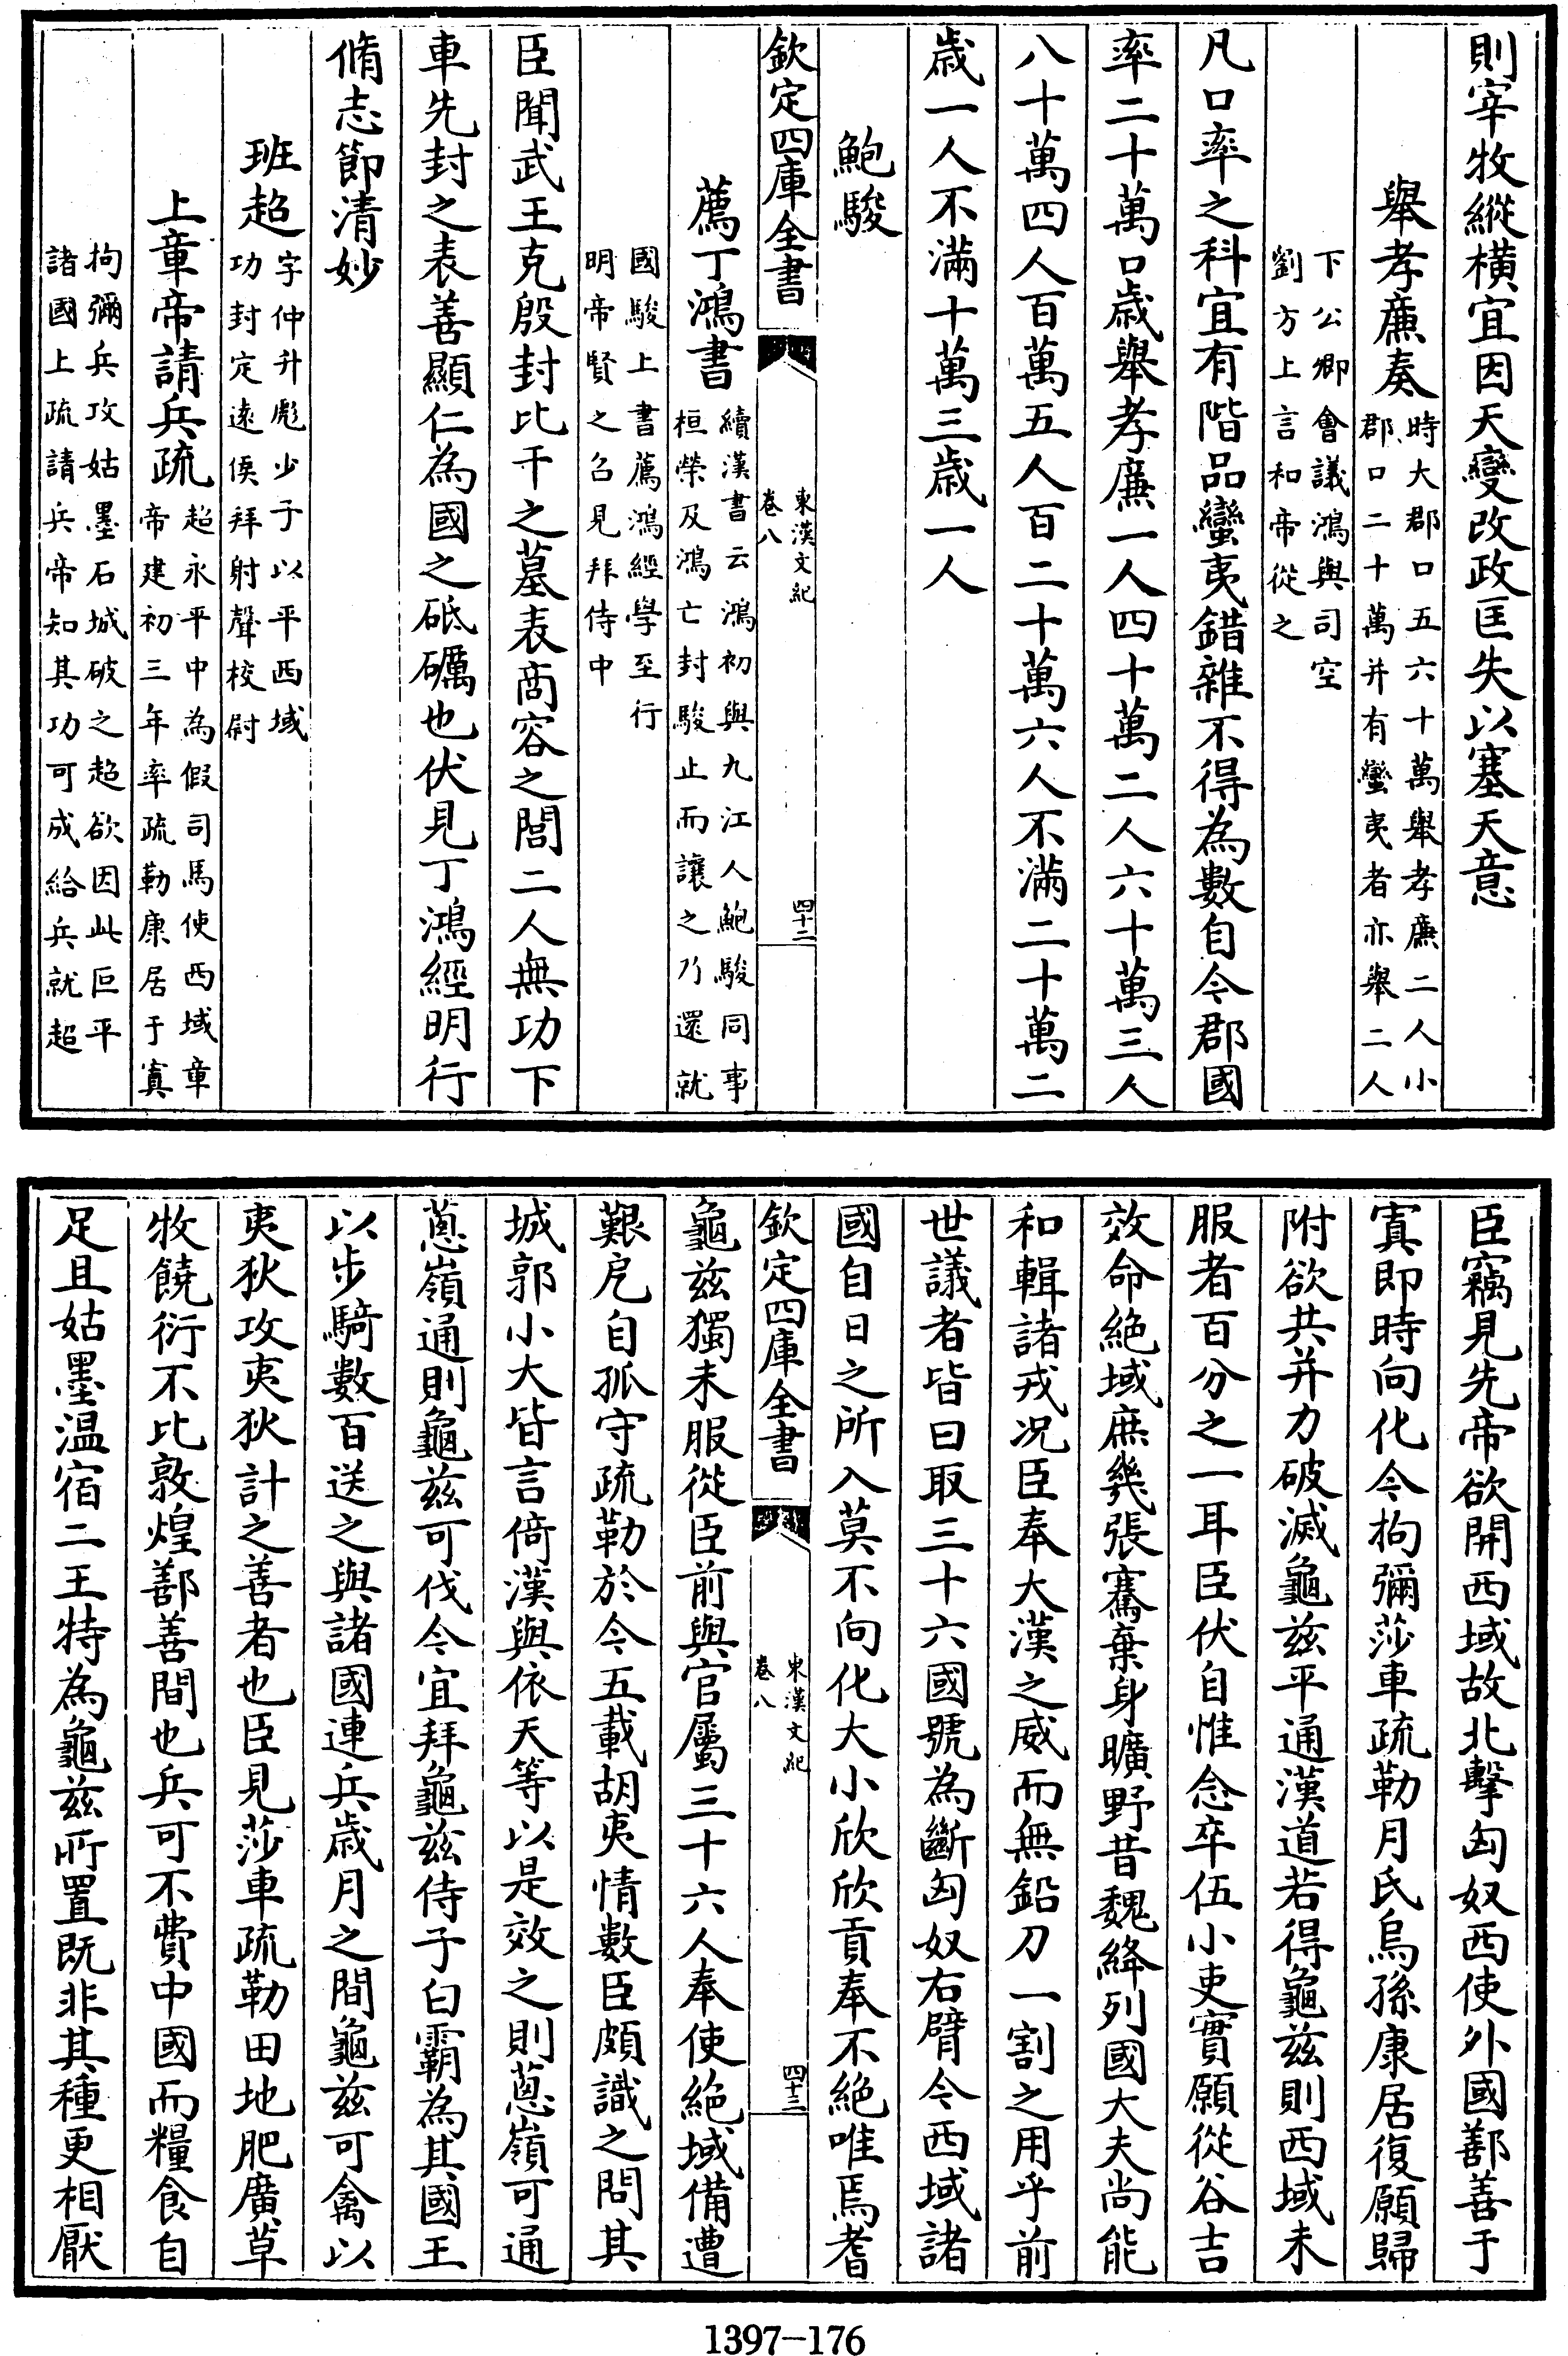 則宰牧縱橫宜因天變改政匡失以塞天意
舉孝廉奏時大郡口五六十萬舉孝廉二人小
郡口二十萬并有蠻夷者亦舉二人
下公卿會議鴻與司空
劉方上言和帝從之
凡口率之科宜有階品蠻夷錯雜不得為數自今郡國
率二十萬口歲舉孝廉一人四十萬二人六十萬三人
八十萬四人百萬五人百二十萬六人不滿二十萬二
歲一人不滿十萬三歲一人
鮑駿
欽定四庫全書
東漢文紀
卷八
四十二
薦丁鴻書續漢書云鴻初與九江人鮑駿同事
桓榮及鴻亡封駿止而讓之乃還就
國駿上書薦鴻經學至行
明帝賢之召見拜侍中
臣聞武王克殷封比干之墓表商容之閭二人無功下
車先封之表善顯仁為國之砥礪也伏見丁鴻經明行
脩志節清妙
班超字仲升彪少子以平西域
功封定遠侯拜射聲校尉
上章帝請兵疏超永平中為假司馬使西域章
帝建初三年率疏勒康居于窴
拘彌兵攻姑墨石城破之超欲因此叵平
諸國上疏請兵帝知其功可成給兵就超
臣竊見先帝欲開西域故北擊匈奴西使外國鄯善于
窴即時向化今拘彌莎車疏勒月氏烏孫康居復願歸
附欲共并力破滅龜兹平通漢道若得龜兹則西域未
服者百分之一耳臣伏自惟念卒伍小吏實願從谷吉
效命絶域庶幾張騫棄身曠野昔魏絳列國大夫尚能
和輯諸戎况臣奉大漢之威而無鉛刀一割之用乎前
世議者皆曰取三十六國號為斷匈奴右臂今西域諸
國自日之所入莫不向化大小欣欣貢奉不絶唯焉耆
欽定四庫全書
東漢文紀
卷八
四十三
龜兹獨未服從臣前與官屬三十六人奉使絶域備遭
艱戹自孤守疏勒於今五載胡夷情數臣頗識之問其
城郭小大皆言倚漢與依天等以是效之則蔥嶺可通
蔥嶺通則龜兹可伐今宜拜龜兹侍子白霸為其國王
以步騎數百送之與諸國連兵歲月之間龜兹可禽以
夷狄攻夷狄計之善者也臣見莎車疏勒田地肥廣草
牧饒衍不比敦煌鄯善間也兵可不費中國而糧食自
足且姑墨温宿二王特為龜兹所置既非其種更相厭
1397-176